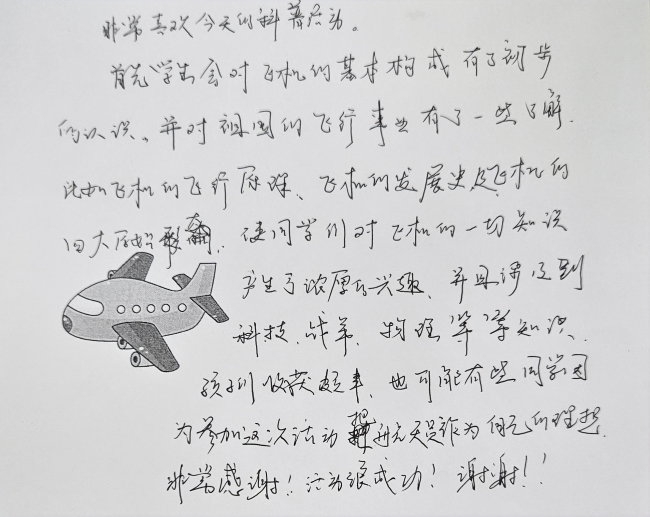 非常喜欢今天的科普活动。
首先学生会对飞机的基本构成有了初步
的认识、并对祖国的飞行事业有了一些了解.
比如飞机的飞行原理、飞机的发展史及飞机的
四大原始. 使同学们对飞机的一切知识
产生了浓厚的兴趣、并且涉及到
科技.战争.物理等等知识.
孩子们收获颇丰、也可能有些同学因
为参加这次活动把航天员作为自己的理想.
非常感谢！活动很成功！谢谢！！